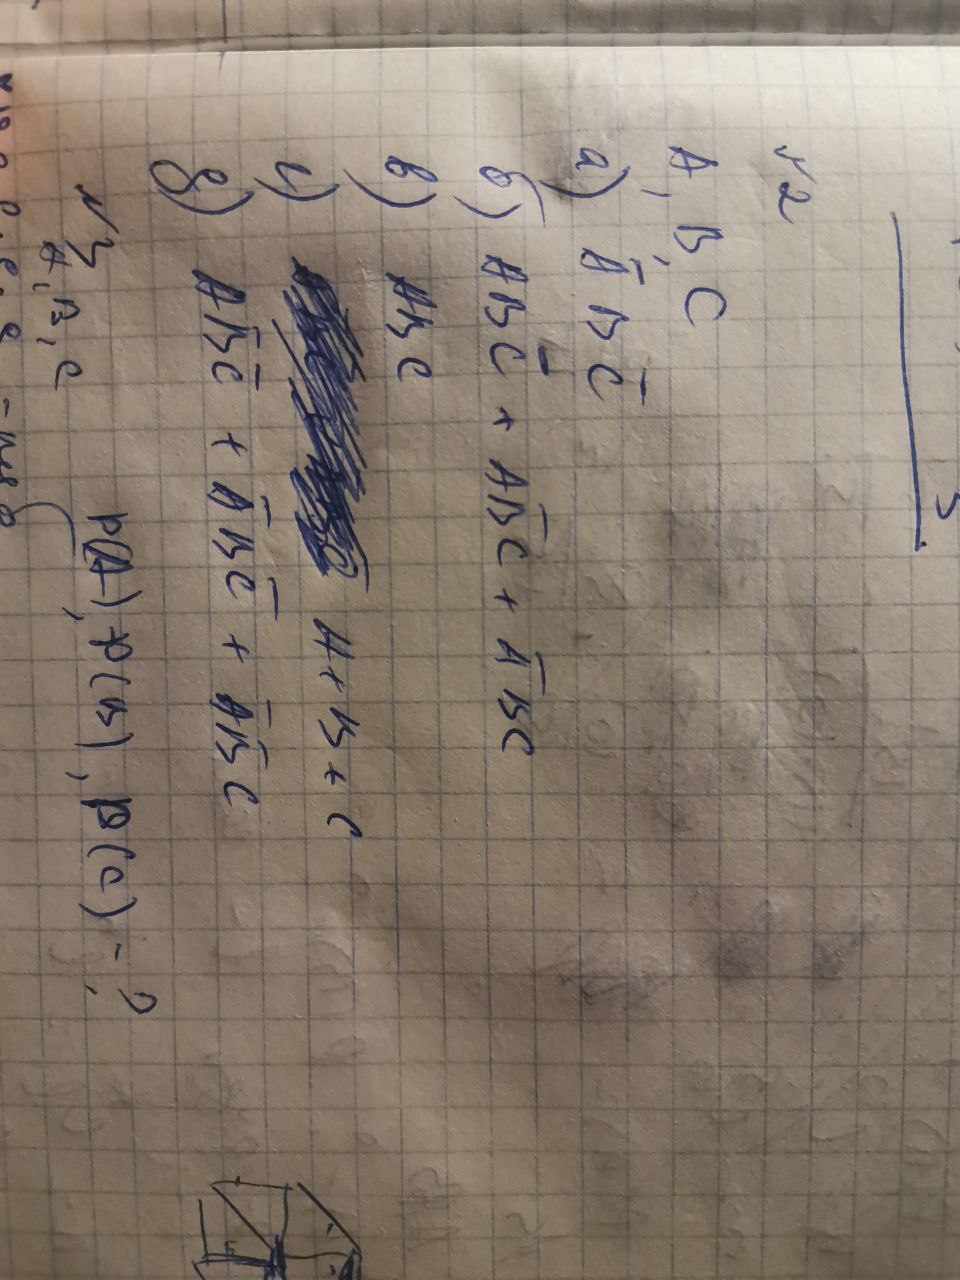 №2
A, B, C
а) A̅ B C̅
б) ABC̅ + AB̅C + A̅BC
в) ABC
г) A + B + C
д) AB̅C̅ + A̅BC̅ + A̅B̅C
№3 P(A), P(B), P(C) - ?
A, B, C